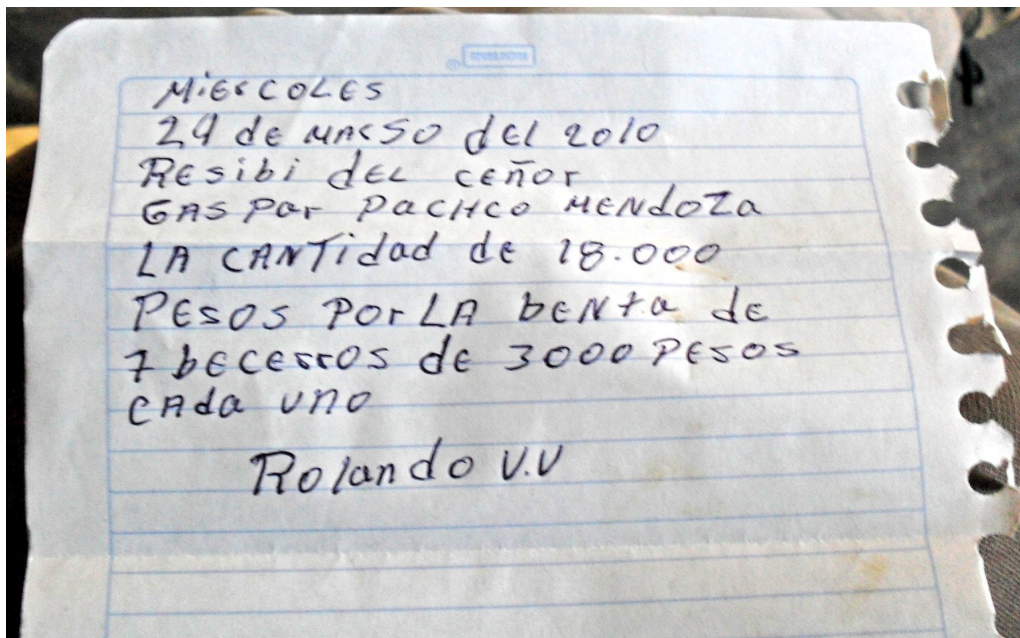 MiercoLES
24 de MARSO dEl 2010
REsibi dEL cEñor
GASPar PACHCO MENdoZa
LA CANTidad de 18.000
PESOS Por LA bENta de
7 bECErros de 3000 PESOS
CAda uno
Rolando V.V